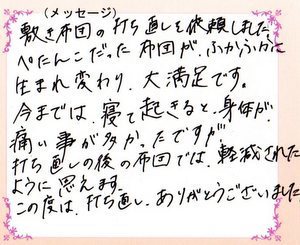 (メッセージ)
敷き布団の打ち直しを依頼しました。
ぺたんこだった布団が、ふかふかに
生まれ変わり、大満足です。
今までは、寝て起きると、身体が、
痛い事が多かったですが、
打ち直しの後の布団では、軽減された
ように思えます。
この度は、打ち直し、ありがとうございました